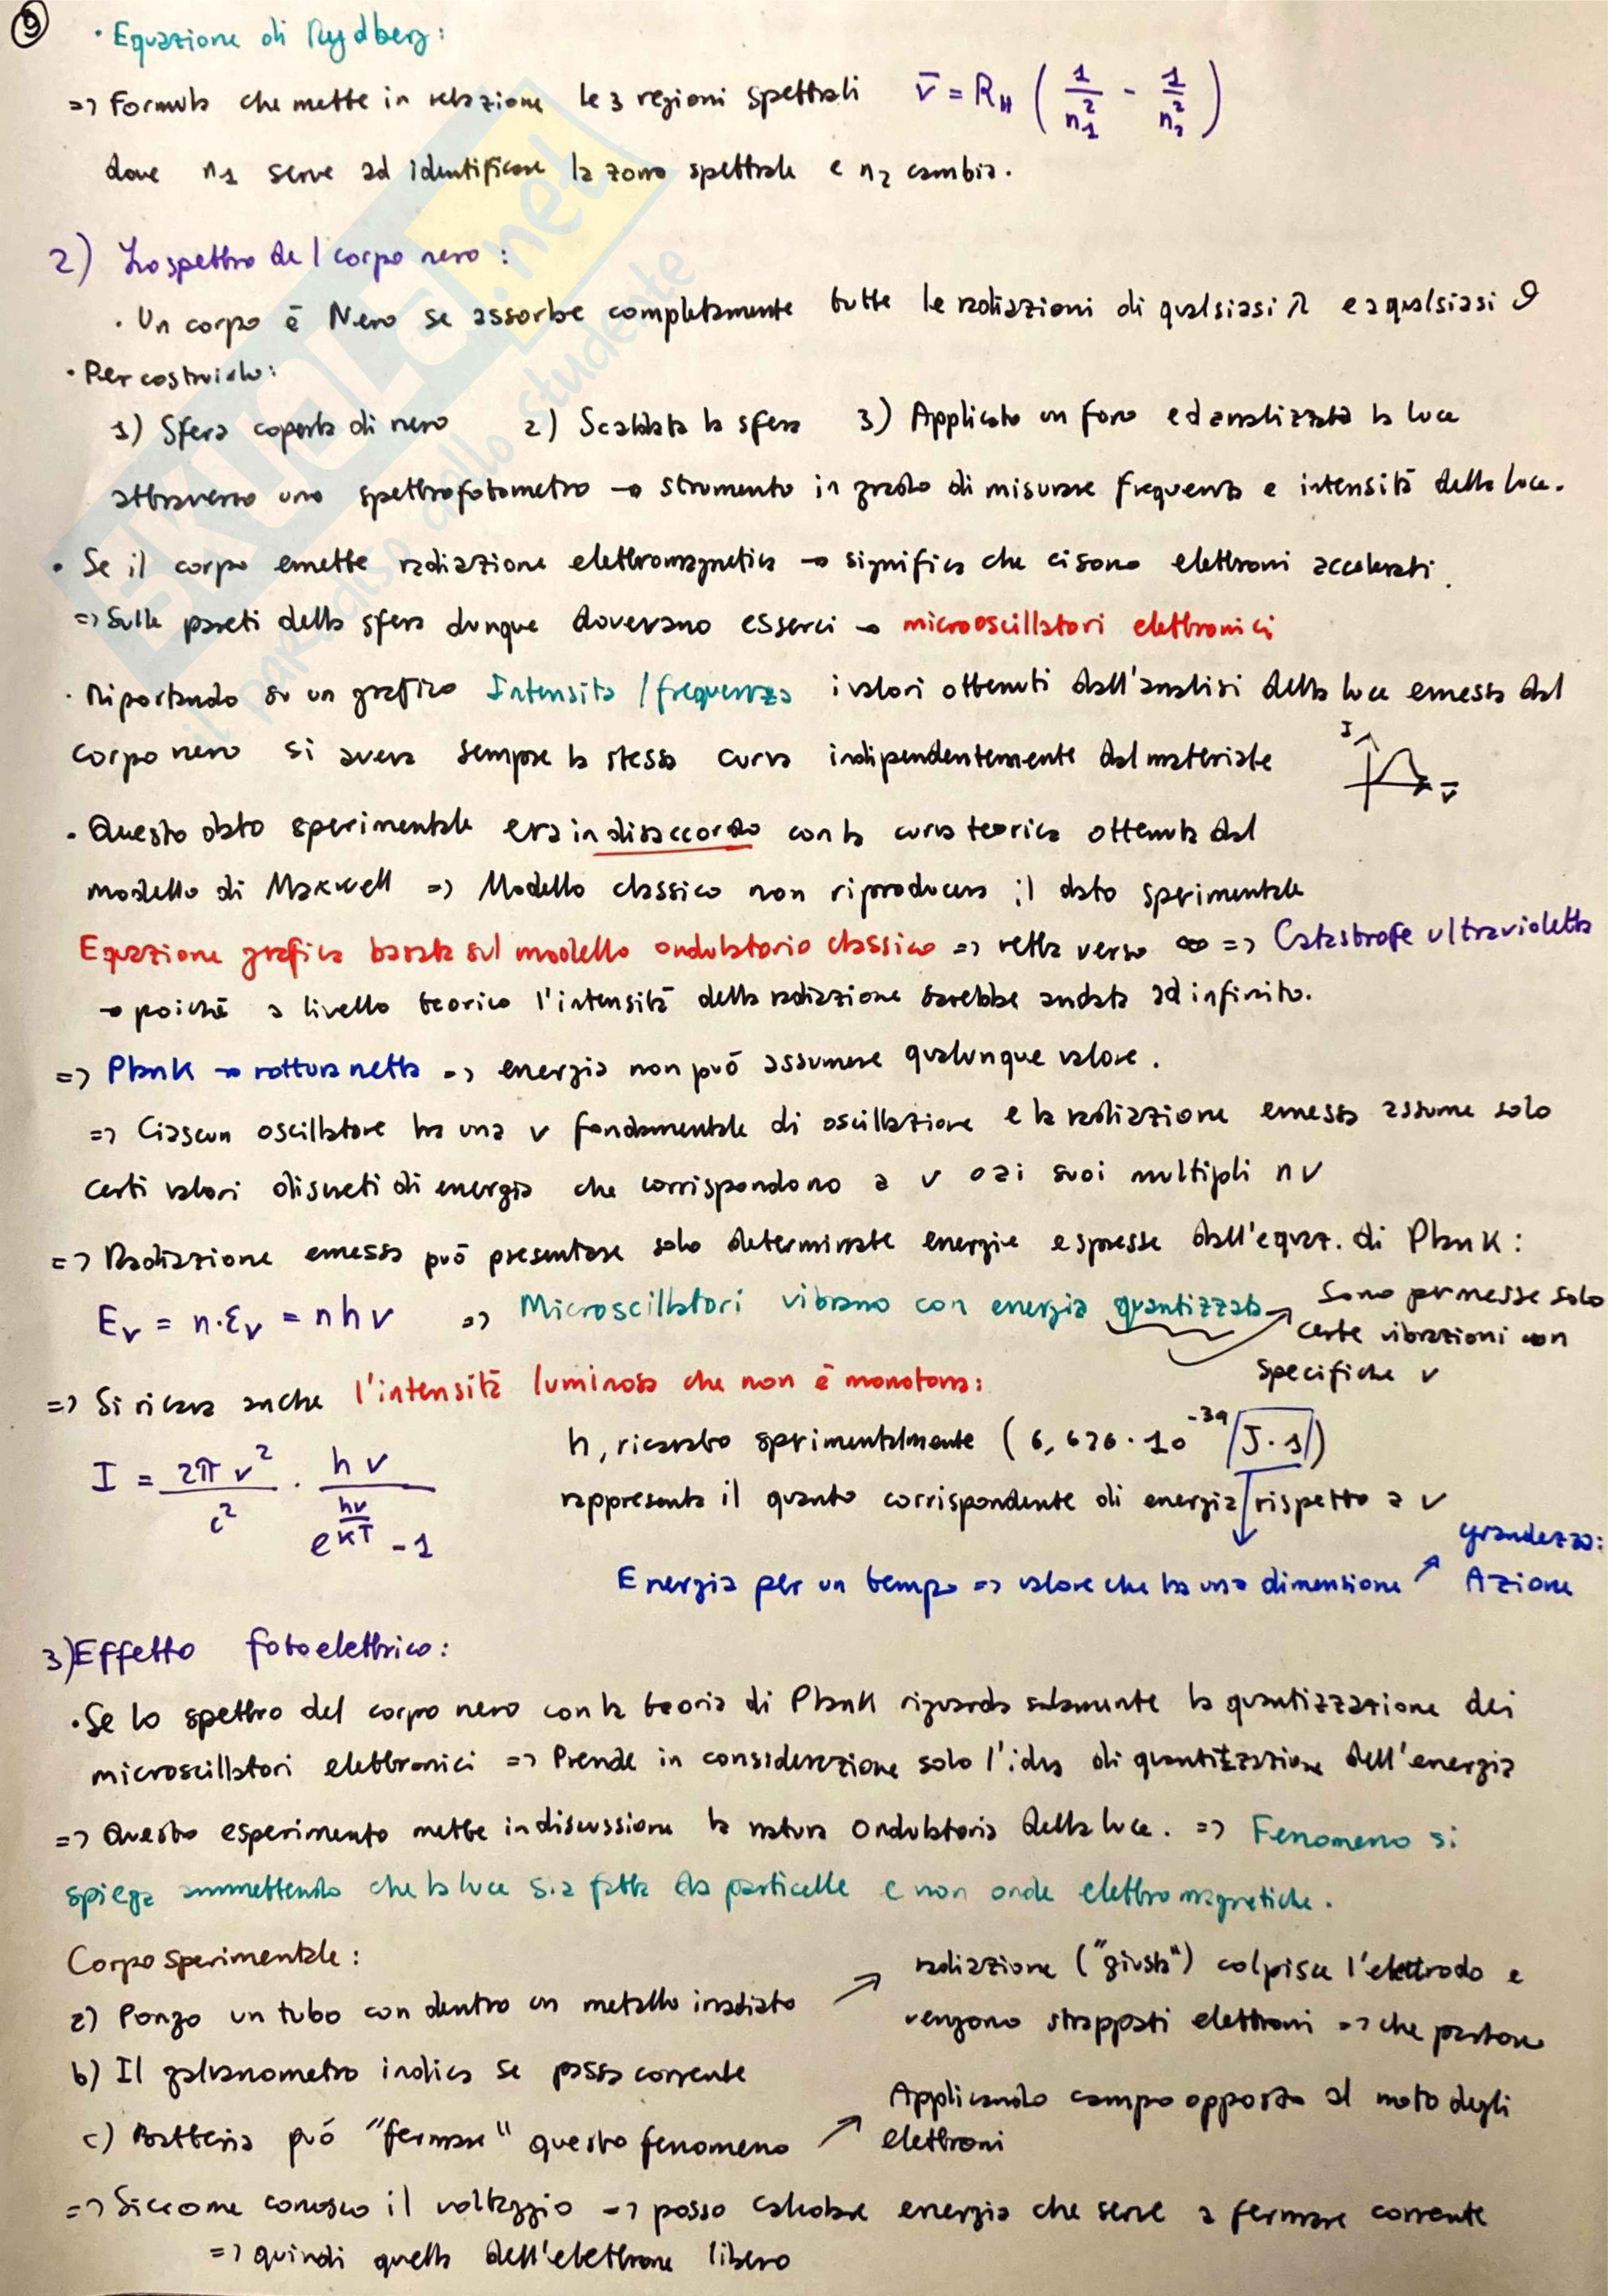 9
· Equazione di Rydberg:
=> Formula che mette in relazione le 3 regioni spettrali ν̄ = R_H ( 1/n₁² - 1/n₂² )
dove n₁ serve ad identificare la zona spettrale e n₂ cambia.
2) Lo spettro del corpo nero :
· Un corpo è Nero se assorbe completamente tutte le radiazioni di qualsiasi λ e a qualsiasi ϑ
· Per costruirlo:
1) Sfera coperta di nero 2) Scaldata la sfera 3) Applicato un foro ed analizzata la luce
attraverso uno spettrofotometro → strumento in grado di misurare frequenza e intensità della luce.
· Se il corpo emette radiazione elettromagnetica → significa che ci sono elettroni accelerati.
=> Sulle pareti della sfera dunque dovevano esserci → microoscillatori elettronici
· Riportando su un grafico Intensità / frequenza i valori ottenuti dall'analisi della luce emessa dal
corpo nero si aveva sempre la stessa curva indipendentemente dal materiale
I
ν̄
· Questo dato sperimentale era in disaccordo con la curva teorica ottenuta dal
modello di Maxwell => Modello classico non riproduceva il dato sperimentale
Equazione grafica basata sul modello ondulatorio classico => retta verso ∞ => Catastrofe ultravioletta
→ poiché a livello teorico l'intensità della radiazione sarebbe andata ad infinito.
=> Plank → rottura netta => energia non può assumere qualunque valore.
=> Ciascun oscillatore ha una ν fondamentale di oscillazione e la radiazione emessa assume solo
certi valori discreti di energia che corrispondono a ν o ai suoi multipli nν
=> Radiazione emessa può presentare solo determinate energie espresse dall'equaz. di Plank :
E_ν = n·ε_ν = nhν => Microscillatori vibrano con energia quantizzata
Sono permesse solo
certe vibrazioni con
specifiche ν
=> Si ricava anche l'intensità luminosa che non è monotona:
I = 2πν²/c² · hν/(e^(hν/KT) - 1)
h, ricavato sperimentalmente ( 6,626 · 10⁻³⁴ J·s )
rappresenta il quanto corrispondente di energia rispetto a ν
Energia per un tempo => valore che ha una dimensione
grandezza:
Azione
3) Effetto fotoelettrico:
· Se lo spettro del corpo nero con la teoria di Plank riguarda solamente la quantizzazione dei
microscillatori elettronici => Prende in considerazione solo l'idea di quantizzazione dell'energia
=> Questo esperimento mette in discussione la natura ondulatoria della luce. => Fenomeno si
spiega ammettendo che la luce sia fatta da particelle e non onde elettromagnetiche.
Corpo sperimentale :
a) Pongo un tubo con dentro un metallo irradiato
radiazione ("giusta") colpisce l'elettrodo e
vengono strappati elettroni => che partono
b) Il galvanometro indica se passa corrente
c) Batteria può "fermare" questo fenomeno
Applicando campo opposto al moto degli
elettroni
=> Siccome conosco il voltaggio => posso calcolare energia che serve a fermare corrente
=> quindi quella dell'elettrone libero
SKUOLA.net
il paradiso dello studente